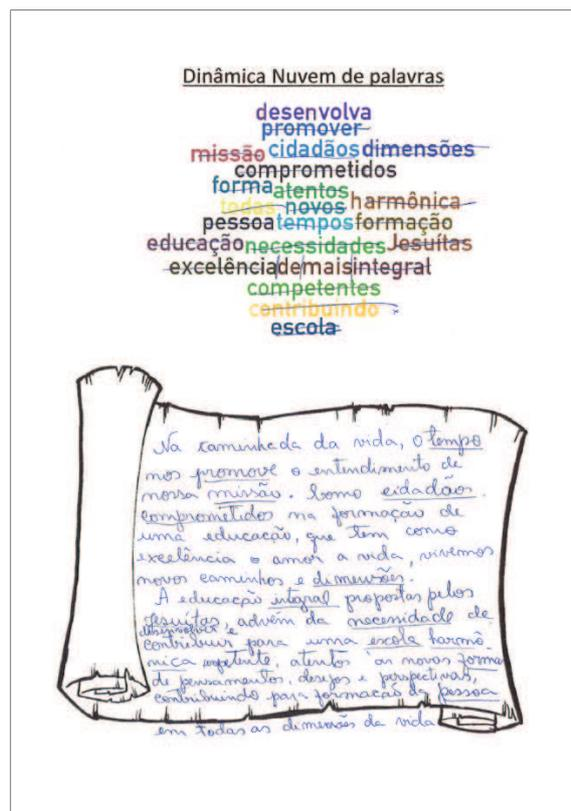 Dinâmica Nuvem de palavras
desenvolva
promover
missão cidadãos dimensões
comprometidos
forma atentos
todas novos harmônica
pessoa tempos formação
educação necessidades Jesuítas
excelência de mais integral
competentes
contribuindo
escola
Na caminhada da vida, o tempo
nos promove o entendimento de
nossa missão. Como cidadãos
comprometidos na formação de
uma educação, que tem como
excelência o amor a vida, vivemos
novos caminhos e dimensões.
A educação integral propostas pelos
Jesuítas, advém da necessidade de
desenvolver e
contribuir para uma escola harmô
nica, atentos as novas formas
de pensamentos, desejos e perspectivas,
contribuindo para formação da pessoa
em todas as dimensões da vida